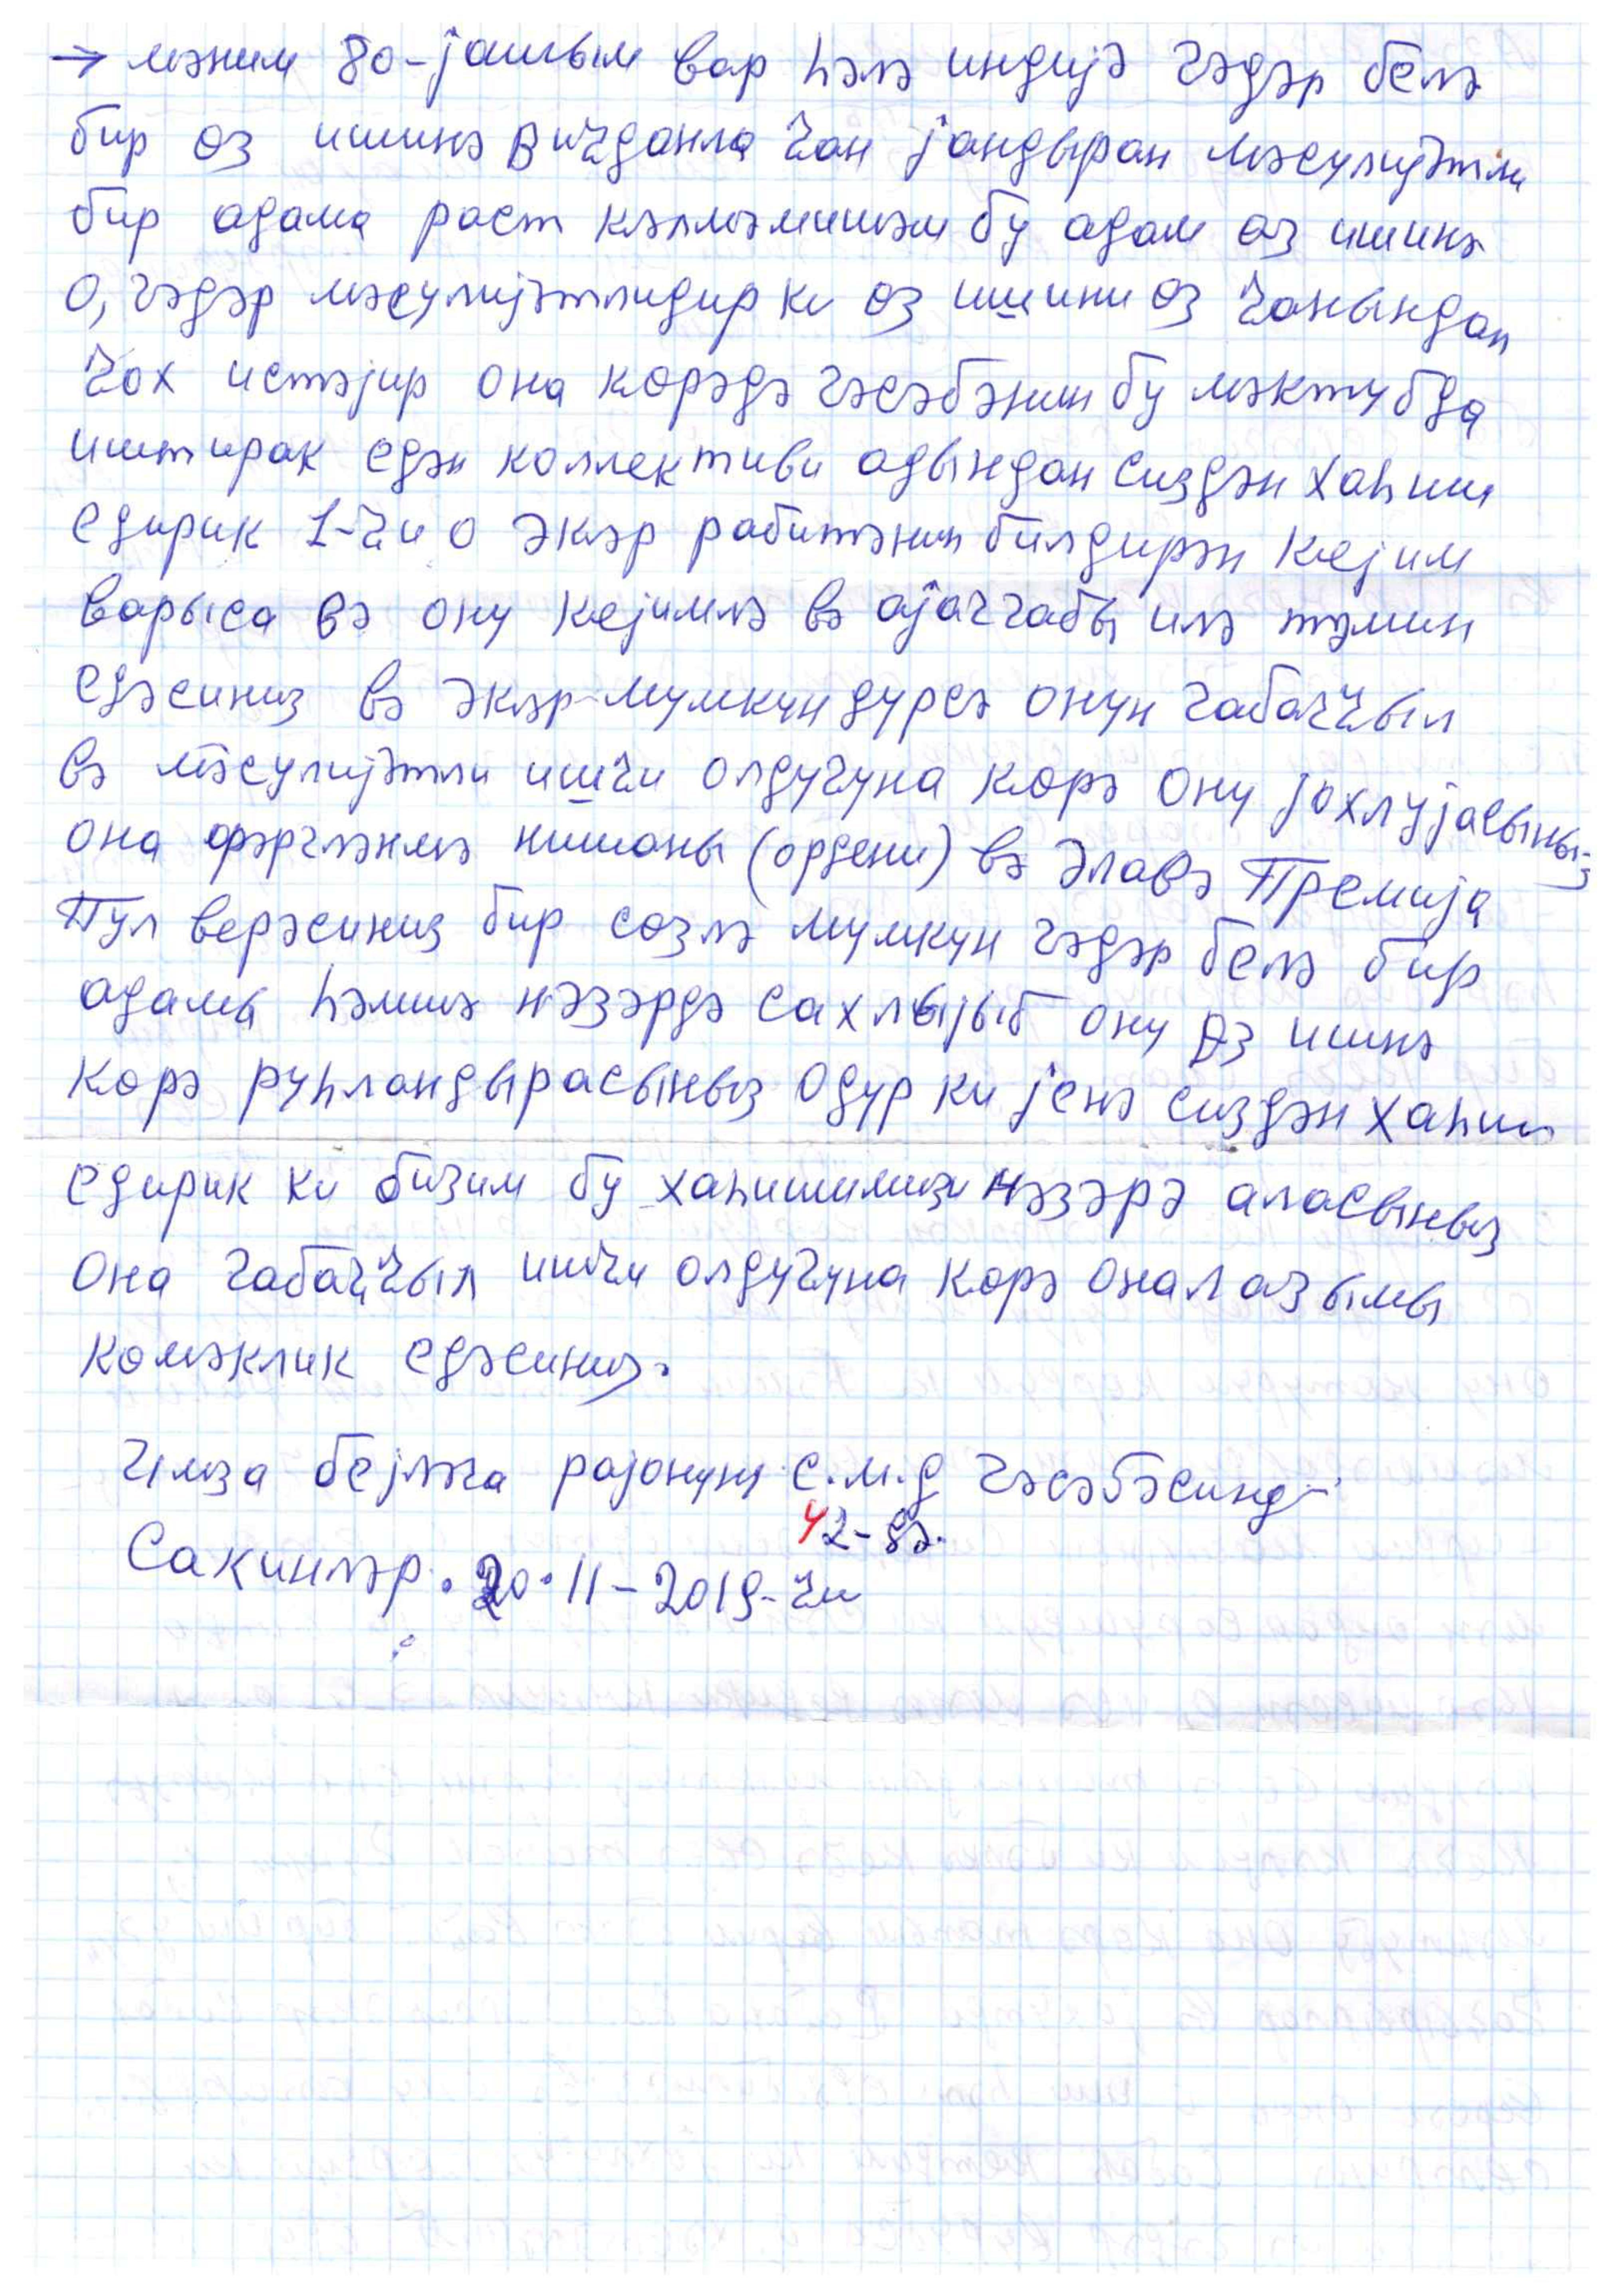 → мәним 80-јашым вар һәлә индијә гәдәр белә
бир өз ишинә виҹданла ҹан јандыран мәсулијәтли
бир адама раст кәлмәмишәм бу адам өз ишинә
о, гәдәр мәсулијәтлидир ки өз ишини өз ҹанындан
чох истәјир она көрәдә гәсәбәнин бу мәктубда
иштирак едән коллективи адындан сиздән хаһиш
едирик 1-чи о әкәр рабитәнин билдирән кејим
варыса вә ону кејимлә вә ајаггабы илә тәмин
едәсиниз вә әкәр мумкундурсә онун габагҹыл
вә мәсулијәтли ишчи олдуғуна көрә ону јохлујасыныз
она фәргләнмә нишаны (ордени) вә әлавә Премија
Пул верәсиниз бир сөзлә мумкун гәдәр белә бир
адамы һәмишә нәзәрдә сахлыјыб ону өз ишинә
көрә руһландырасыныз одур ки јенә сиздән хаһиш
едирик ки бизим бу хаһишимизи нәзәрә аласыныз
Она габагҹыл ишчи олдуғуна көрә она лазымы
көмәклик едәсиниз.
Имза бејләга рајонуну с.м.д гәсәбәсинд-
42-дә.
Сакинләр. 20.11-2019-чи